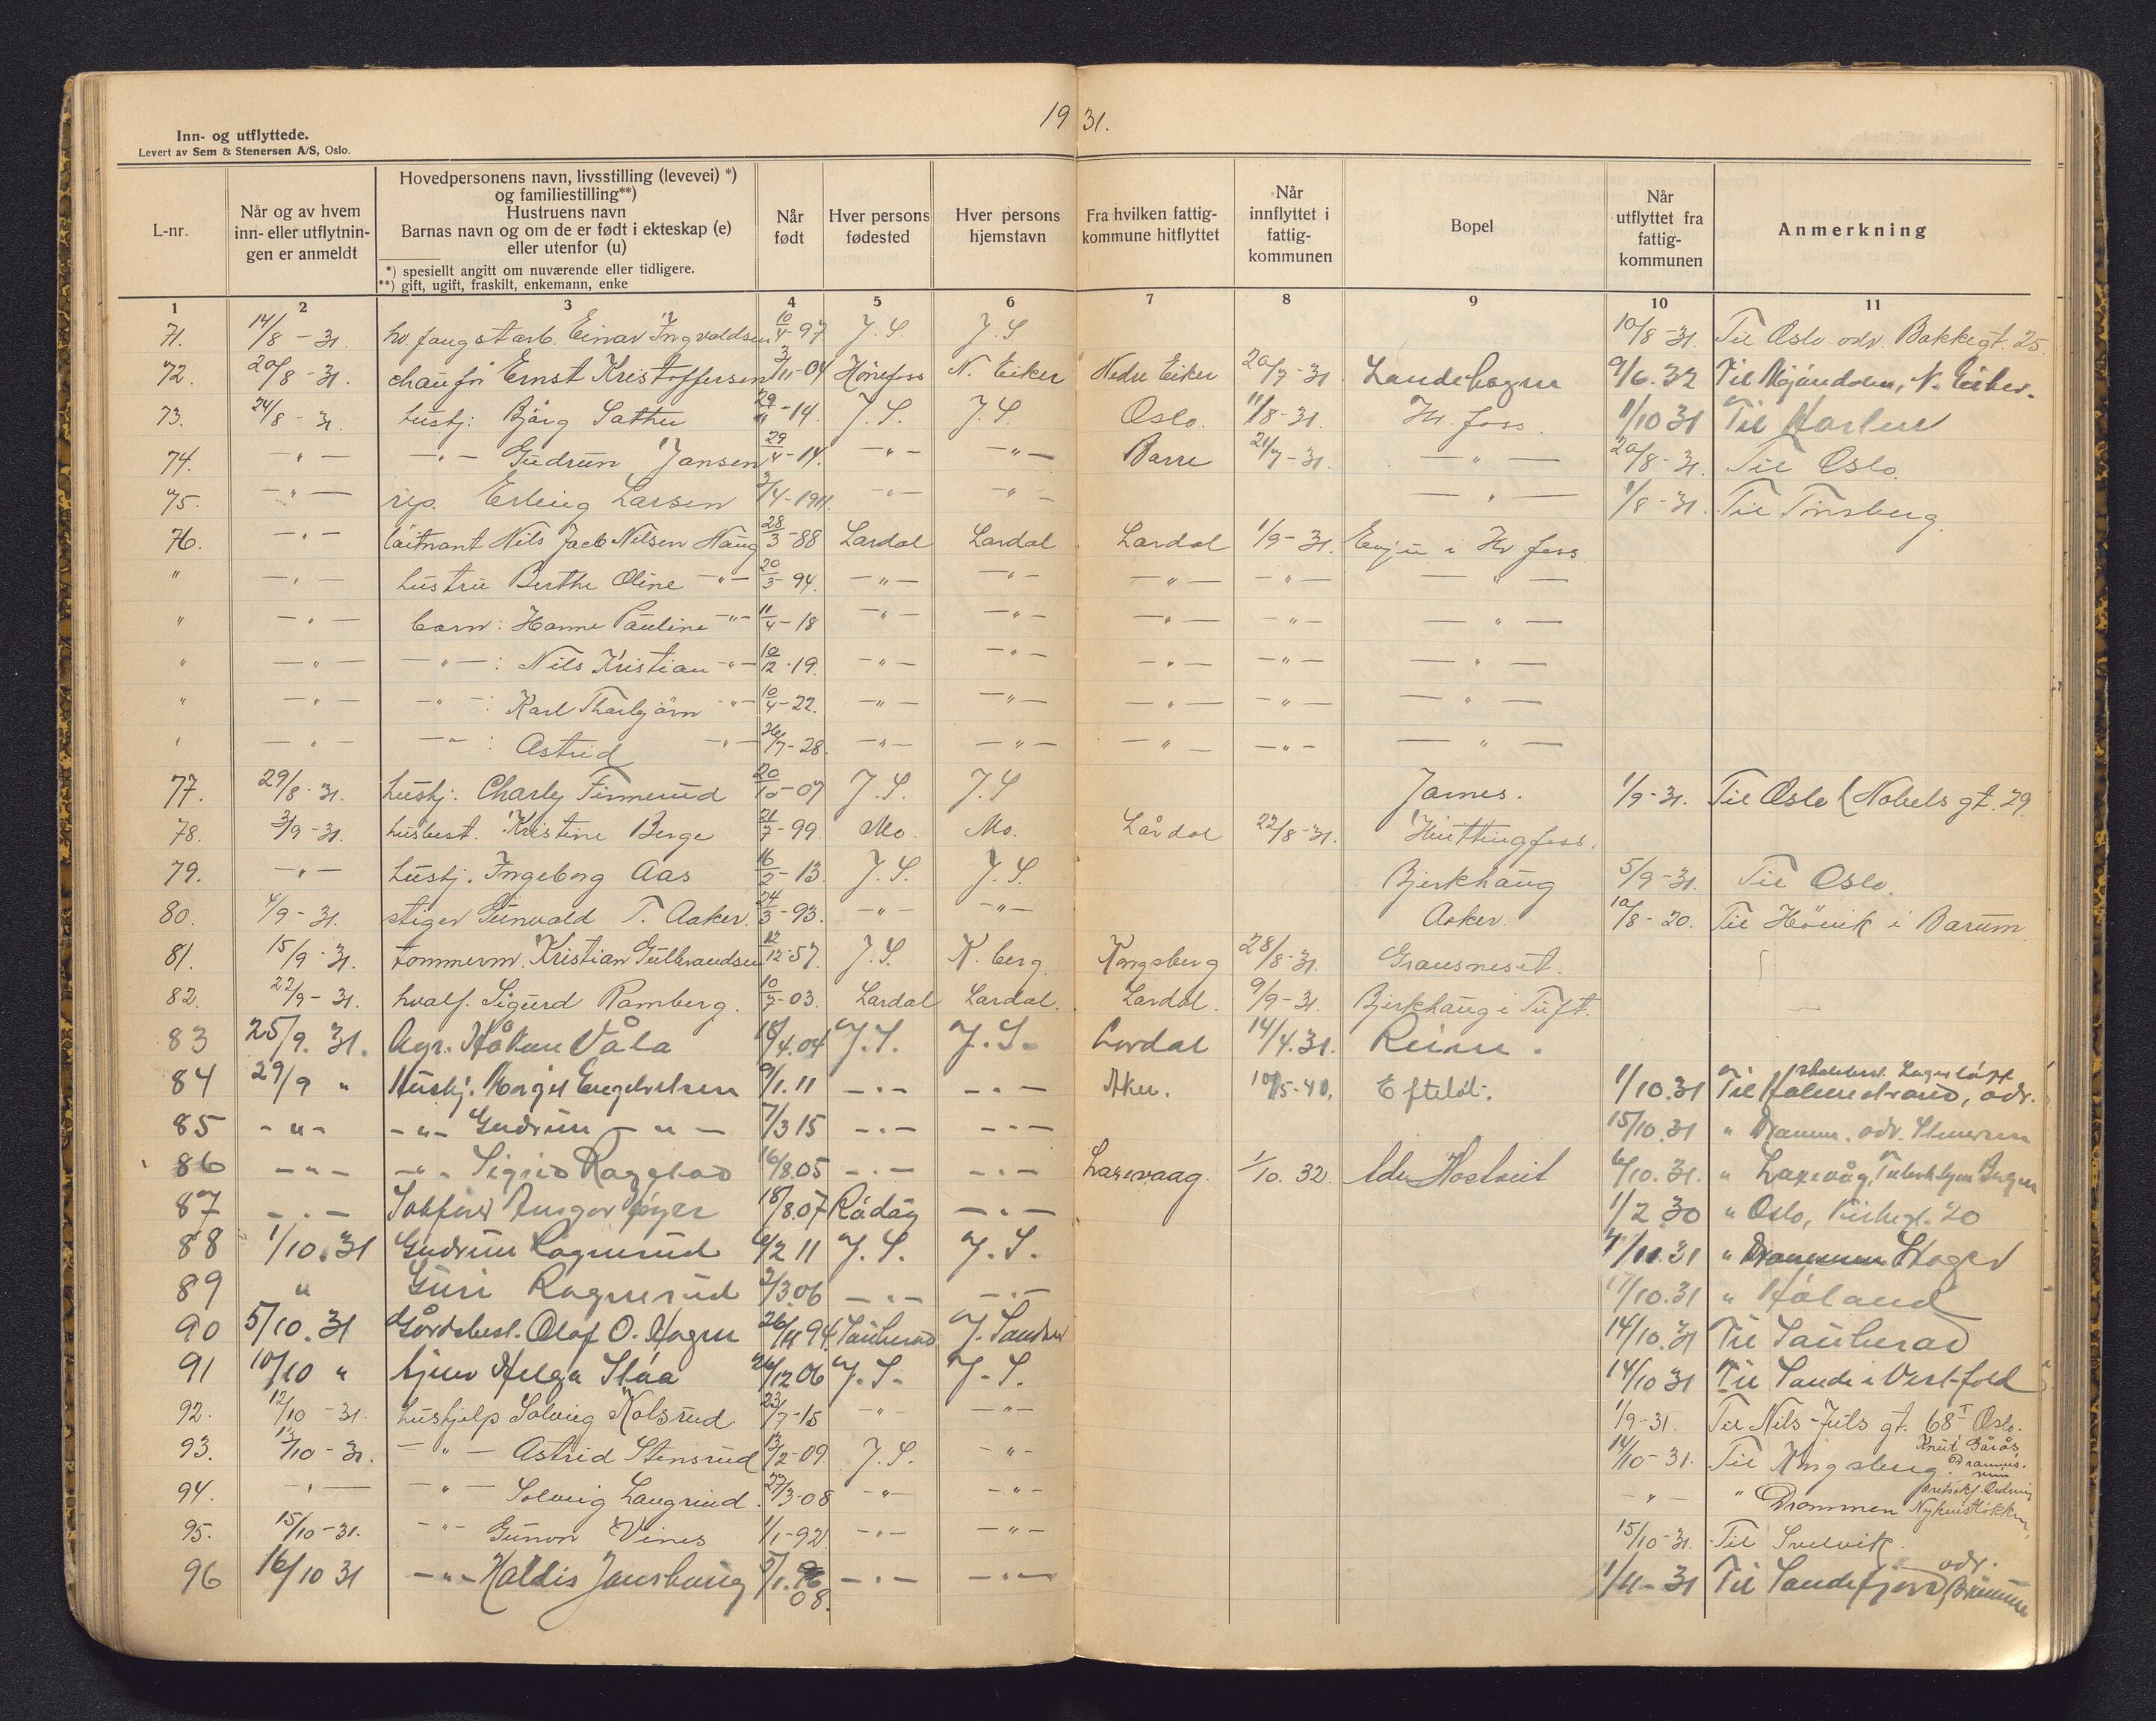 1931.
Inn- og utflyttede.
Levert av Sem & Stenersen A/S, Oslo.
L-nr. | Når og av hvem inn- eller utflytningen er anmeldt | Hovedpersonens navn, livsstilling (levevei) *) og familiestilling**) Hustruens navn Barnas navn og om de er født i ekteskap (e) eller utenfor (u) *) spesiellt angitt om nuværende eller tidligere. **) gift, ugift, fraskilt, enkemann, enke | Når født | Hver persons fødested | Hver persons hjemstavn | Fra hvilken fattigkommune hitflyttet | Når innflyttet i fattigkommunen | Bopel | Når utflyttet fra fattigkommunen | Anmerkning
1 2 3 4 5 6 7 8 9 10 11
71. 14/8-31. hv. fangstarb. Einar Ingvaldsen 10/4-97 J.S. J.S. 10/8-31. Til Oslo adr. Bakkegt. 25.
72. 20/8-31. chaufør Ernst Kristoffersen 3/11-04 Hönefoss N. Eiker Nedre Eiker 20/7-31 Landehagen 9/6.32 Til Mjöndalen, N. Eiker.
73. 24/8-31. hushj. Bjørg Sathe 29/4-14. J.S. J.S. Oslo. 11/8-31. Hv. foss. 1/10 31 Til
74. -"- -"- Gudrun Jansen 29/4-14. -"- -"- Borre 21/7-31. -"- 20/8-31. Til Oslo.
75. -"- rep. Erling Larsen 2/4-1911. -"- -"- -"- 1/8-31. Til Tönsberg.
76. -"- löitnant Nils Jacob Nilsen Haug 28/3-88 Lardal Lardal Lardal 1/9-31. i Hv foss.
" -"- hustru Berthe Oline -"- 20/5-94. -"- -"- -"- -"- -"-
" -"- barn: Hanne Pauline -"- 11/4-18 -"- -"- -"- -"- -"-
" -"- -"-: Nils Kristian -"- 10/12-19. -"- -"- -"- -"- -"-
" -"- -"-: Karl Thorbjörn -"- 10/4-22. -"- -"- -"- -"- -"-
" -"- -"-: Astrid -"- 26/7-28. -"- -"- -"- -"- -"-
77. 29/8-31. hushj. Charly Finnerud 20/10-07 J.S. J.S Jarnes. 1/9-31. Til Oslo (Nobels gt. 29.
78. 3/9-31. husbest. Kristine Berge 21/7-99. Mo. Mo. Lårdal 22/8-31. Hvittingfoss.
79. -"- hushj. Ingeborg Aas 16/2-13. J.S. J.S. Bjerkhaug 5/9-31. Til Oslo.
80. 4/9-31. stiger Gunvald T. Aaker. 24/3-93. -"- -"- Aaker. 10/8-20. Til Hövik i Bærum
81. 15/9-31. tømmerm. Kristian Gulbrandsen 12/12-57. J.S. K.berg Kongsberg 28/8-31. Gransneset.
82. 22/9-31. hvalf. Sigurd Ramberg. 10/7-03. Lardal Lardal. Lardal. 9/9-31. Bjerkhaug i Tuft.
83 25/9.31. Agr. Håkon Våla 18/4.04 J.S. J.S. Lardal 14/4.31.
84 29/9 " Hushj. Engebretsen 9/1.11 -"- -"- Aker. 10/5-40. Efteløt. 1/10.31 Til Holmestrand, adr.
85 -"- -"- Gudrun -"- 7/3 15 -"- -"- 15/10.31 " Dramm. adr.
86 -"- -"- Sigrid 16/8.05 -"- -"- Laxevaag. 1/10.32. 6/10.31. " Laxevåg,
87 -"- Ansgar 18/8.07 Rødøy -"- 1/2 30 " Oslo, 20
88 1/10.31 Gudrun Rognerud 6/2 11 J.S. J.S. 7/11.31 " Drammen
89 " Guri Rognerud 2/3.06 -"- -"- 17/10.31 " Høland
90 5/10.31 Gårdsbest. Olaf O. Hagen 26/11 94 Sauherad J. Sandsv 14/10.31 Til Sauherad
91 10/10 " hjem Helga Slåa 26/12 06 J.S. J.S. 14/10 31 Til Sande i Vestfold
92. 12/10-31. hushjelp Solveig Kolsrud 23/7-15 -"- -"- 1/9-31. Til Nils-Juls gt. 68 I Oslo.
93. 13/10-31. -"- Astrid Stensrud 13/2-09. J.S. -"- 14/10-31. Til Kongsberg. Knut
94. -"- -"- Solveig Langrind 27/3-08 -"- -"- -"- " Drammen
95. 15/10-31. -"- Gunvor Vines 1/1-92 -"- -"- 15/10-31. Til Svelvik.
96 16/10 31 -"- Haldis Jonshaug 5/1. 08. -"- -"- 1/11-31 Til Sandefjord, adr.